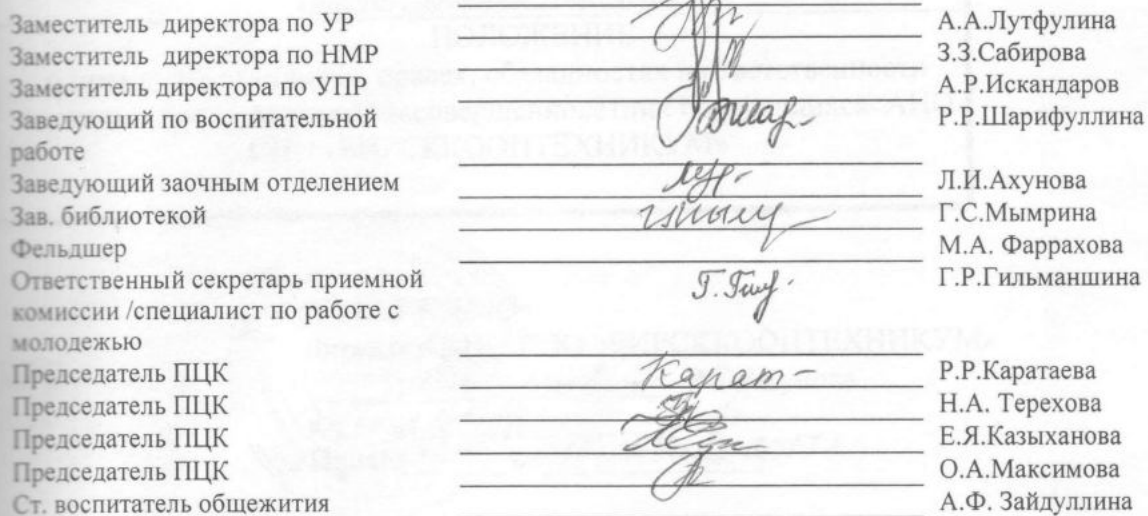 Заместитель директора по УР А.А.Лутфулина
Заместитель директора по НМР З.З.Сабирова
Заместитель директора по УПР А.Р.Искандаров
Заведующий по воспитательной Р.Р.Шарифуллина
работе
Заведующий заочным отделением Л.И.Ахунова
Зав. библиотекой Г.С.Мымрина
Фельдшер М.А. Фаррахова
Ответственный секретарь приемной Г.Р.Гильманшина
комиссии /специалист по работе с
молодежью
Председатель ПЦК Карат Р.Р.Каратаева
Председатель ПЦК Н.А. Терехова
Председатель ПЦК Е.Я.Казыханова
Председатель ПЦК О.А.Максимова
Ст. воспитатель общежития А.Ф. Зайдуллина